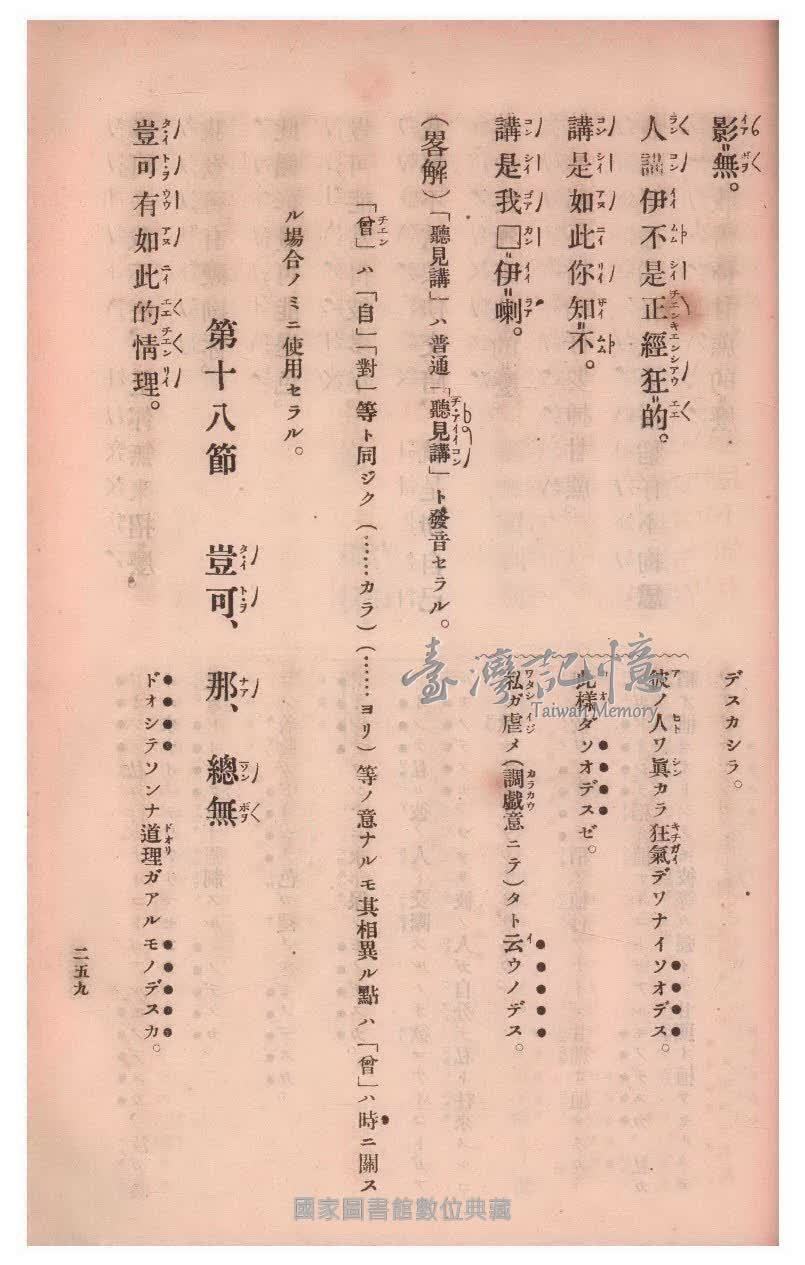 影無。
デスカシラ。
人講伊不是正經狂的。
彼ノ人ワ眞カラ狂氣デワナイソオデス。
講是如此你知不。
此樣ダソオデスゼ。
講是我□伊喇。
私ガ虐メ(調戯意ニテ)タト云ウノデス。
(畧解)「聽見講」ハ普通「聽見講」ト發音セラル。
「曾」ハ「自」「對」等ト同ジク(……カラ)(……ヨリ)等ノ意ナルモ其相異ル點ハ「曾」ハ時ニ關ス
ル場合ノミニ使用セラル。
第十八節 豈可、那、總無
豈可有如此的情理。
ドオシテソンナ道理ガアルモノデスカ。
二五九
臺灣記憶
Taiwan Memory
國家圖書館數位典藏